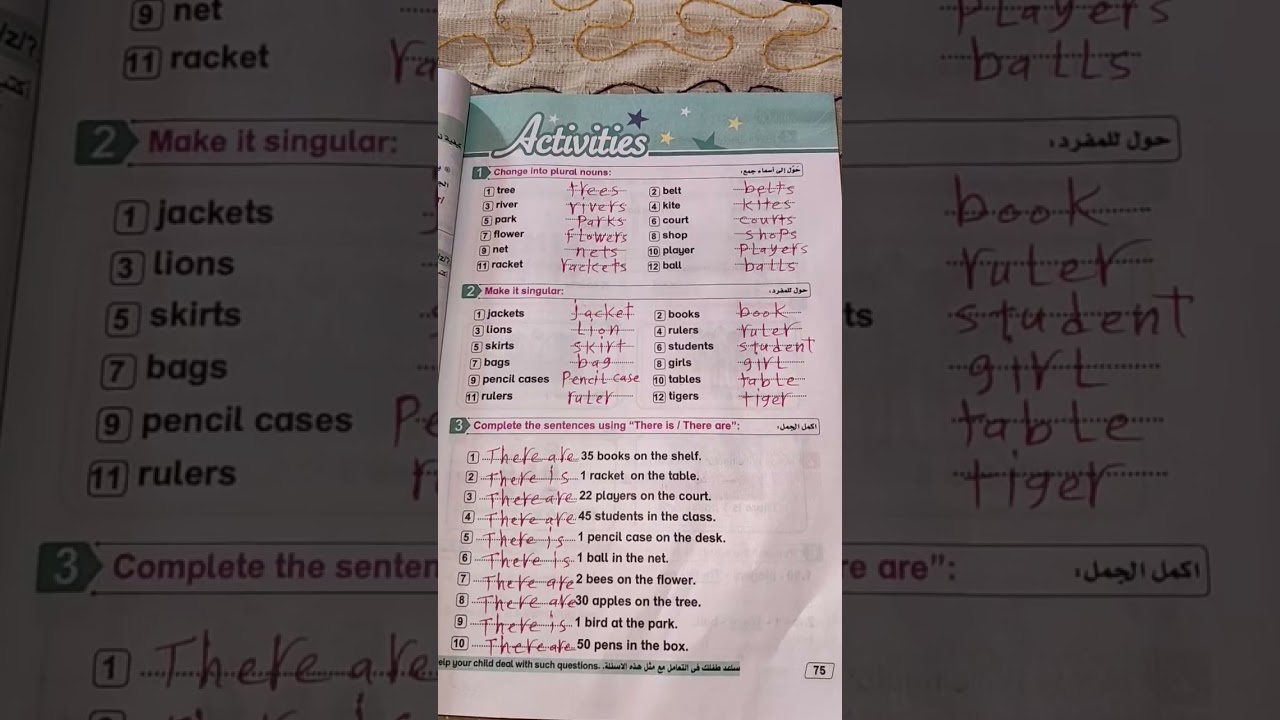 Activities
1 Change into plural nouns: حول إلى أسماء جمع:
1 tree trees 2 belt belts
3 river rivers 4 kite kites
5 park Parks 6 court courts
7 flower flowers 8 shop shops
9 net nets 10 player Players
11 racket rackets 12 ball balls
2 Make it singular: حول للمفرد:
1 jackets jacket 2 books book
3 lions Lion 4 rulers ruler
5 skirts skirt 6 students student
7 bags bag 8 girls girl
9 pencil cases Pencil case 10 tables table
11 rulers ruler 12 tigers tiger
3 Complete the sentences using "There is / There are": اكمل الجمل:
1 There are 35 books on the shelf.
2 There is 1 racket on the table.
3 There are 22 players on the court.
4 There are 45 students in the class.
5 There is 1 pencil case on the desk.
6 There is 1 ball in the net.
7 There are 2 bees on the flower.
8 There are 30 apples on the tree.
9 There is 1 bird at the park.
10 There are 50 pens in the box.
elp your child deal with such questions. ساعد طفلك فى التعامل مع مثل هذه الاسئلة.
75
9 net
11 racket
2 Make it singular:
1 jackets
3 lions
5 skirts
7 bags
9 pencil cases
11 rulers
3 Complete the senten
1 There are
Players
balls
حول للمفرد:
book
ruler
ts student
girl
table
tiger
re are": اكمل الجمل: